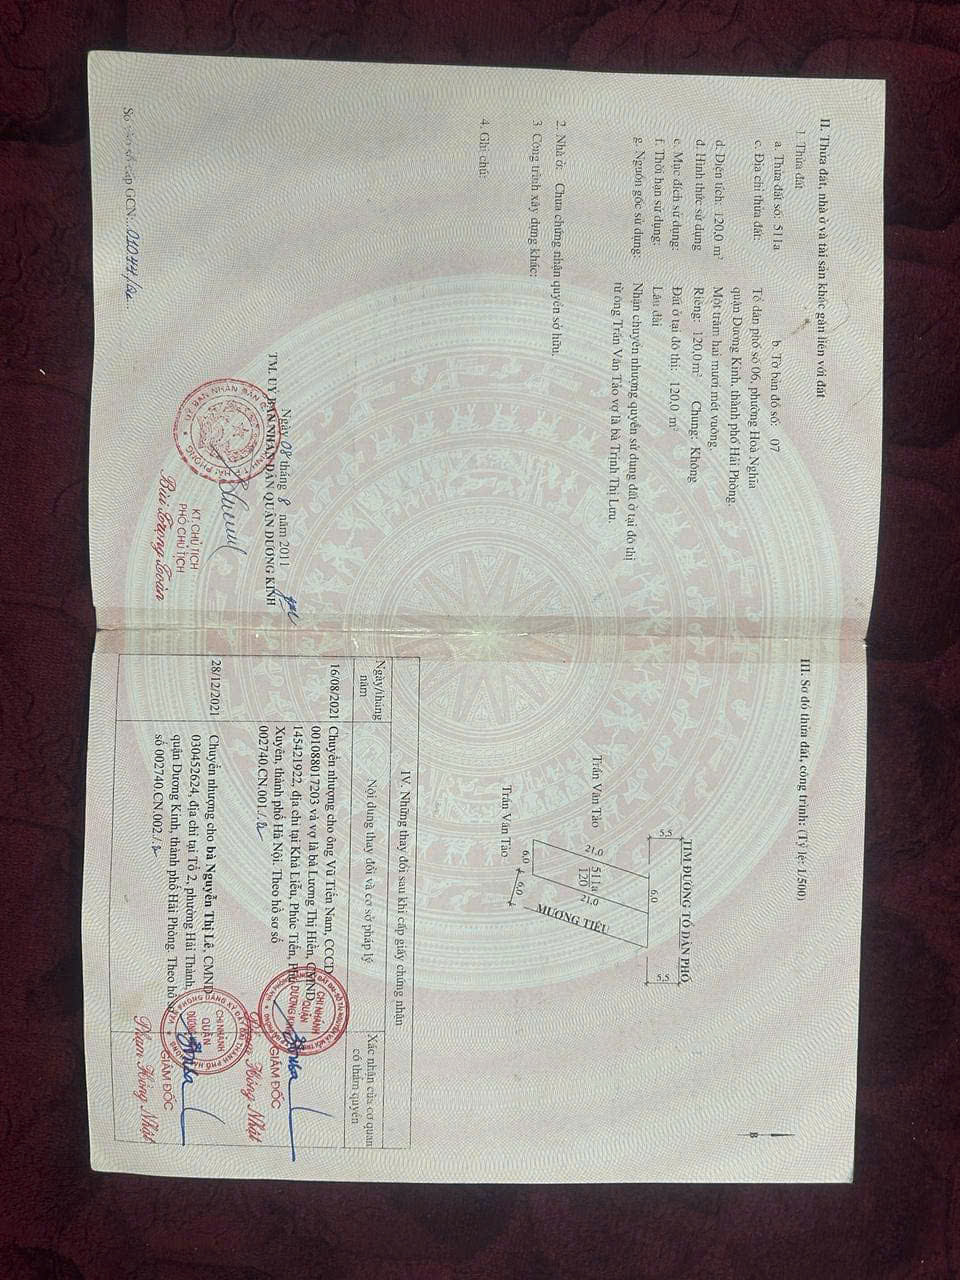 II. Thửa đất, nhà ở và tài sản khác gắn liền với đất
1. Thửa đất
a. Thửa đất số: 511a b. Tờ bản đồ số: 07
c. Địa chỉ thửa đất: Tổ dân phố số 06, phường Hoà Nghĩa
quận Dương Kinh, thành phố Hải Phòng.
d. Diện tích: 120,0 m² Một trăm hai mươi mét vuông.
đ. Hình thức sử dụng Riêng: 120,0 m² Chung: Không
e. Mục đích sử dụng: Đất ở tại đô thị: 120,0 m²
f. Thời hạn sử dụng: Lâu dài
g. Nguồn gốc sử dụng: Nhận chuyển nhượng quyền sử dụng đất ở tại đô thị
từ ông Trần Văn Tảo vợ là bà Trịnh Thị Lưu.
2. Nhà ở: Chưa chứng nhận quyền sở hữu.
3 Công trình xây dựng khác:
4. Ghi chú:
Ngày 08 tháng 8 năm 2011
TM. UỶ BAN NHÂN DÂN QUẬN DƯƠNG KINH
KT.CHỦ TỊCH
PHÓ CHỦ TỊCH
Bùi Trọng Toàn
Số vào sổ cấp GCN: 01044/
III. Sơ đồ thửa đất, công trình: (Tỷ lệ: 1/500)
TIM ĐƯỜNG TỔ DÂN PHỐ
5,5
5,5
6,0
Trần Văn Tảo
21,0
511a
120
21,0
MƯƠNG TIÊU
6,0
6,0
Trần Văn Tảo
B
IV. Những thay đổi sau khi cấp giấy chứng nhận
Ngày/tháng năm
Nội dung thay đổi và cơ sở pháp lý
Xác nhận của cơ quan có thẩm quyền
16/08/2021 Chuyển nhượng cho ông Vũ Tiến Nam, CCCD
001088017203 và vợ là bà Lương Thị Hiền, CMND
145421922, địa chỉ tại Khả Liễu, Phúc Tiến, Phú
Xuyên, thành phố Hà Nội. Theo hồ sơ số
002740.CN.001
CHI NHÁNH
QUẬN
DƯƠNG KINH
GIÁM ĐỐC
Phạm Hồng Nhật
28/12/2021 Chuyển nhượng cho bà Nguyễn Thị Lê, CMND
030452624, địa chỉ tại Tổ 2, phường Hải Thành,
quận Dương Kinh, thành phố Hải Phòng. Theo hồ sơ
số 002740.CN.002
CHI NHÁNH
QUẬN
GIÁM ĐỐC
Phạm Hồng Nhật